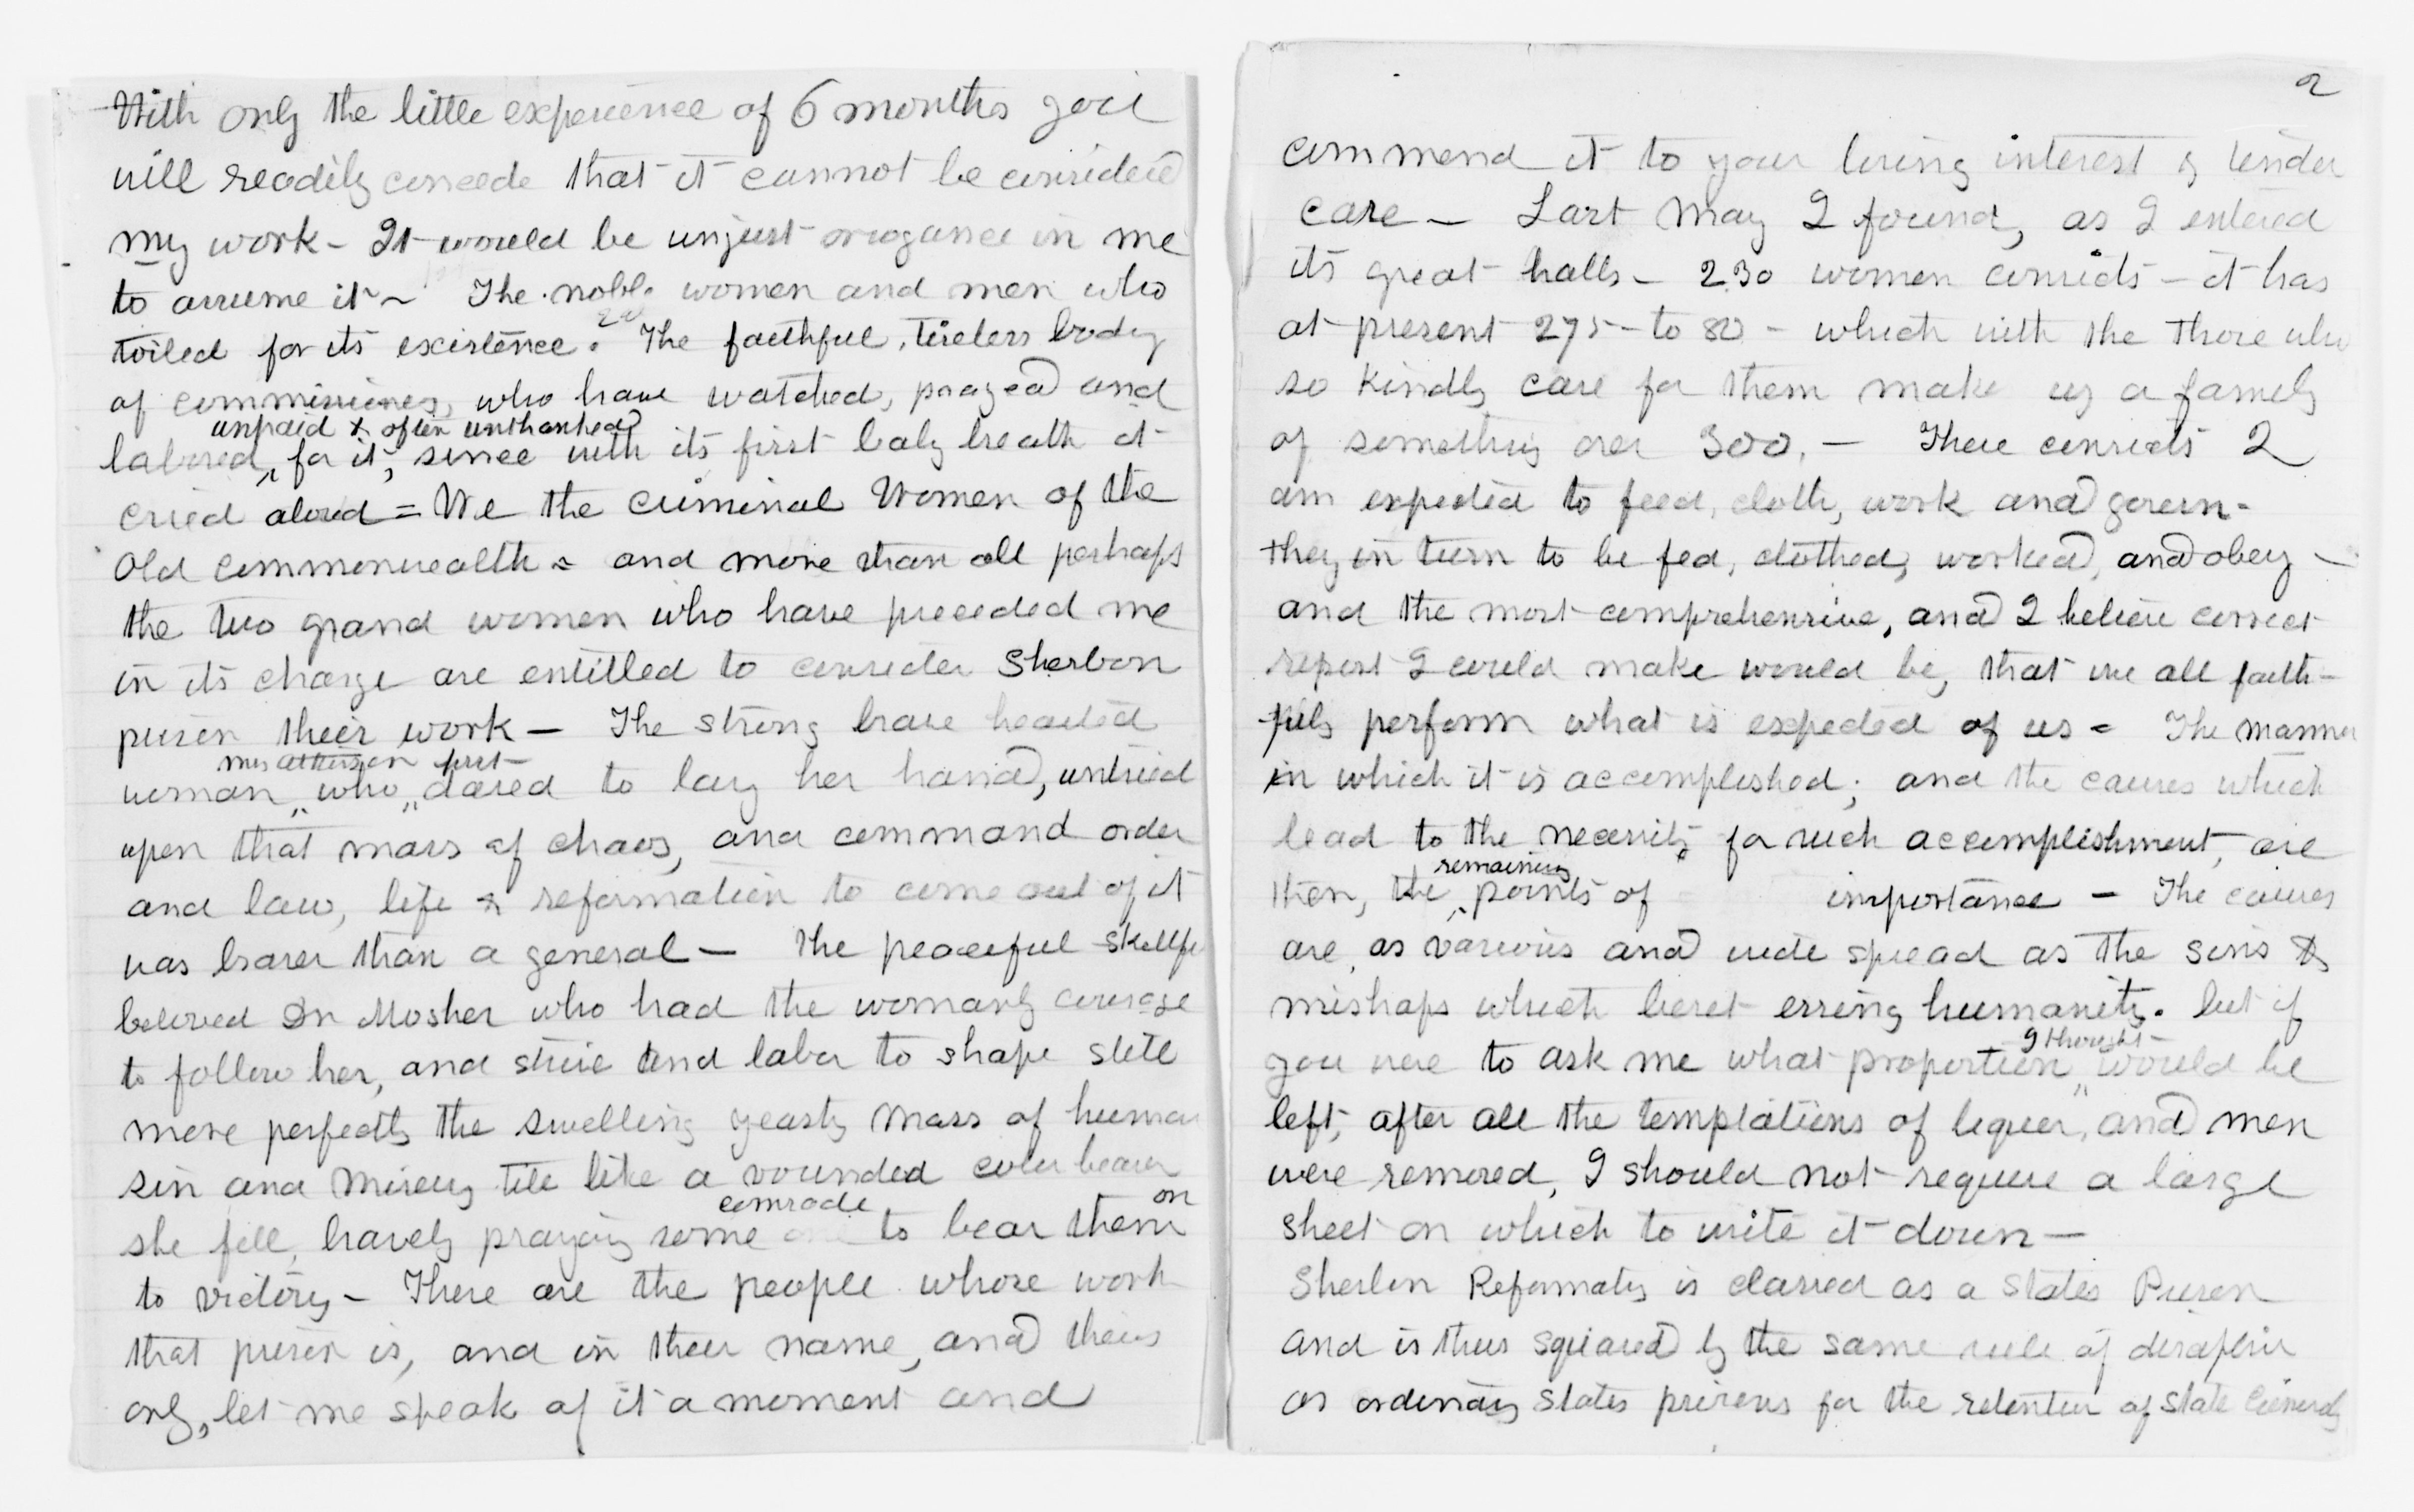 With only the little experience of 6 months you
will readily concede that it cannot be considered
my work - It would be unjust arrogance in me
to assume it ~ The noble women and men who
toiled for its existence. The faithful, tireless body
of commissioners, who have watched, prayed and
unpaid & often unthanked
labored, for it, since with its first baby breath it
cried aloud = We the criminal Women of the
Old Commonwealth = and more than all perhaps
the two grand women who have preceded me
in its charge are entitled to consider Sherbon
prison their work — The strong brave hearted
mrs Atkinson first
woman who dared to lay her hand, untried
upon that mass of chaos, and command order
and law, life & reformation to come out of it
was braver than a general — the peaceful skillful
beloved Dr Mosher who had the womanly courage
to follow her, and strive and labor to shape still
more perfectly the swelling yeasty mass of human
sin and misery till like a wounded color bearer
comrade on
she fell, bravely praying some to bear them
to victory - These are the people whose work
that prison is, and in their name, and theirs
only, let me speak of it a moment and
2
commend it to your loving interest & tender
care — Last May I found, as I entered
its great halls - 230 women convicts - it has
at present 275 - to 80 - which with the those who
so kindly care for them make us a family
of something over 300. — These convicts I
am expected to feed, cloth, work and govern -
they in turn to be fed, clothed, worked, and obey -
and the most comprehensive, and I believe correct
report I could make would be, that we all faith-
fuly perform what is expected of us = The manner
in which it is accomplished; and the causes which
lead to the necessity for such accomplishment, are
remaining
then, the points of importance - The causes
are, as various and wide spread as the sins &
mishaps which beset erring humanity. but if
I thought
you were to ask me what proportion would be
left, after all the temptations of liquor, and men
were removed, I should not require a large
sheet on which to write it down —
Sherbon Reformatory is classed as a States Prison
and is thus squared by the same rule of disciplin
as ordinary states prisons for the retention of state